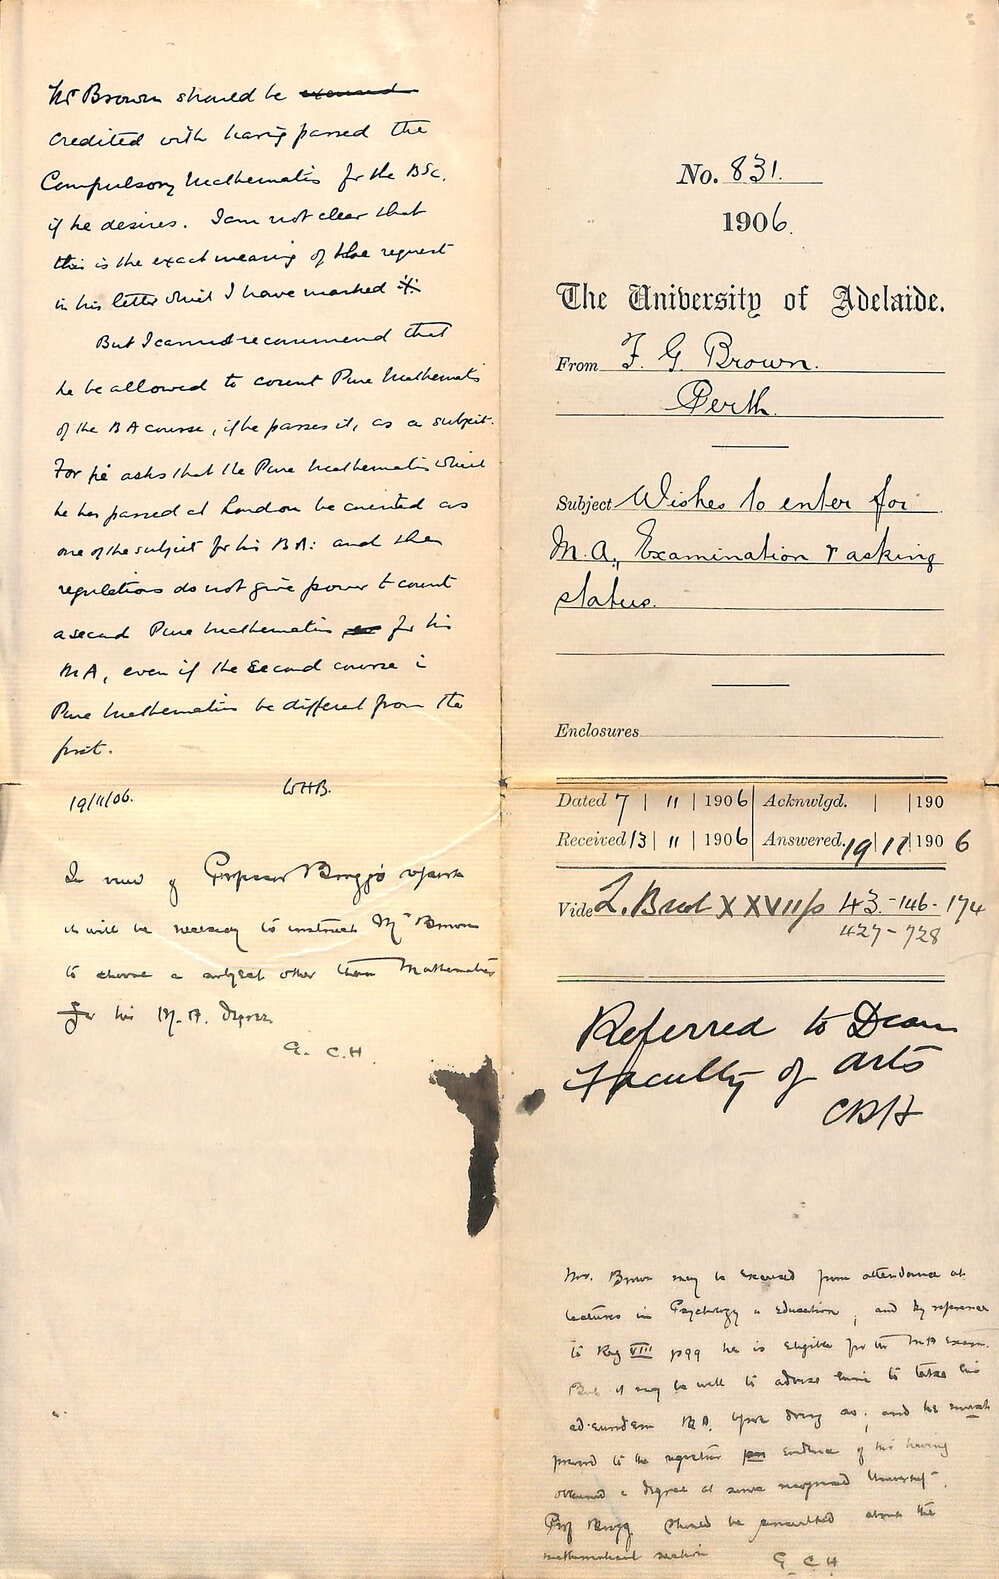 Mr Brown should be excused
credited with having passed the
Compulsory Mathematics for the BSc.
if he desires. I am not clear that
this is the exact meaning of the request
in his letter which I have marked
But I cannot recommend that
he be allowed to count Pure Mathematics
of the BA course, if he passes it, as a subject.
For he asks that the Pure Mathematics which
he has passed at London be counted as
one of the subjects for his BA: and the
regulations do not give power to count
a second Pure Mathematics for his
MA, even if the second course in
Pure Mathematics be different from the
first.
19/11/06. WHB.
In view of Professor Bragg's report
it will be necessary to instruct Mr Brown
to choose a subject other than Mathematics
for his M.A. degree
G. C. H.
No. 831.
1906.
The University of Adelaide.
From F. G. Brown.
Perth.
Subject Wishes to enter for
M.A., Examination & asking
status.
Enclosures
Dated 7 | 11 | 1906 Acknwlgd. | | 190
Received 13 | 11 | 1906 Answered. 19 | 11 | 1906
Vide L. Book XXVII p 43 - 146 - 174
427 - 728
Referred to Dean
Faculty of Arts
CRH
Mr. Brown may be excused from attendance at
lectures in Psychology & Education, and by reference
to Reg VIII p99 he is eligible for the MA Exam.
But it may be well to advise him to take his
ad eundem BA. before doing so; and he must
proceed to the registrar evidence of his having
obtained a degree at some recognised University.
Prof Bragg should be consulted about the
mathematical section G. C. H